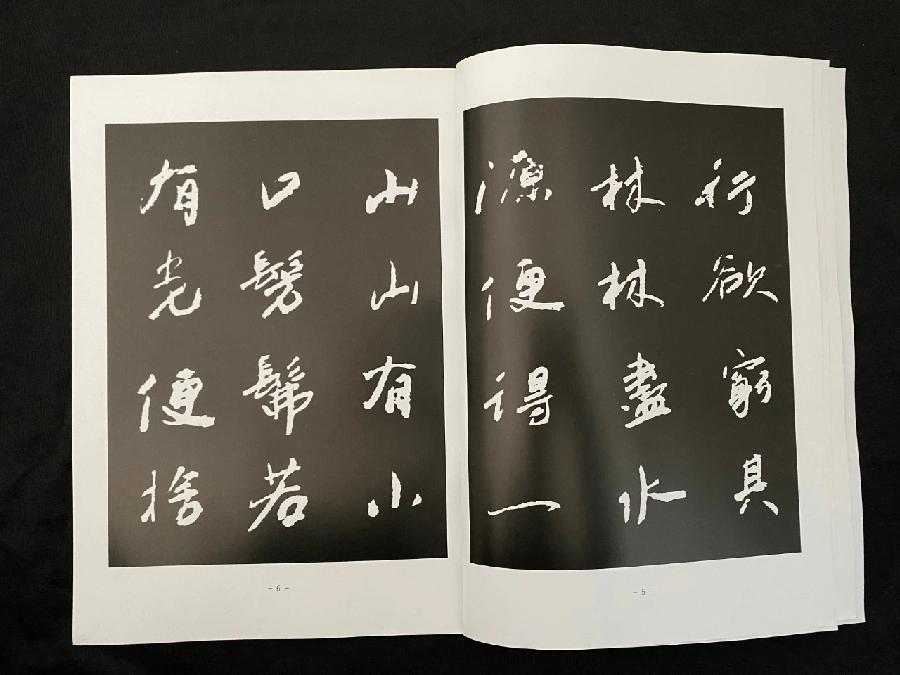 行欲窮其
林林盡水
源便得一
- 5 -
山山有小
口髣髴若
有光便捨
- 6 -